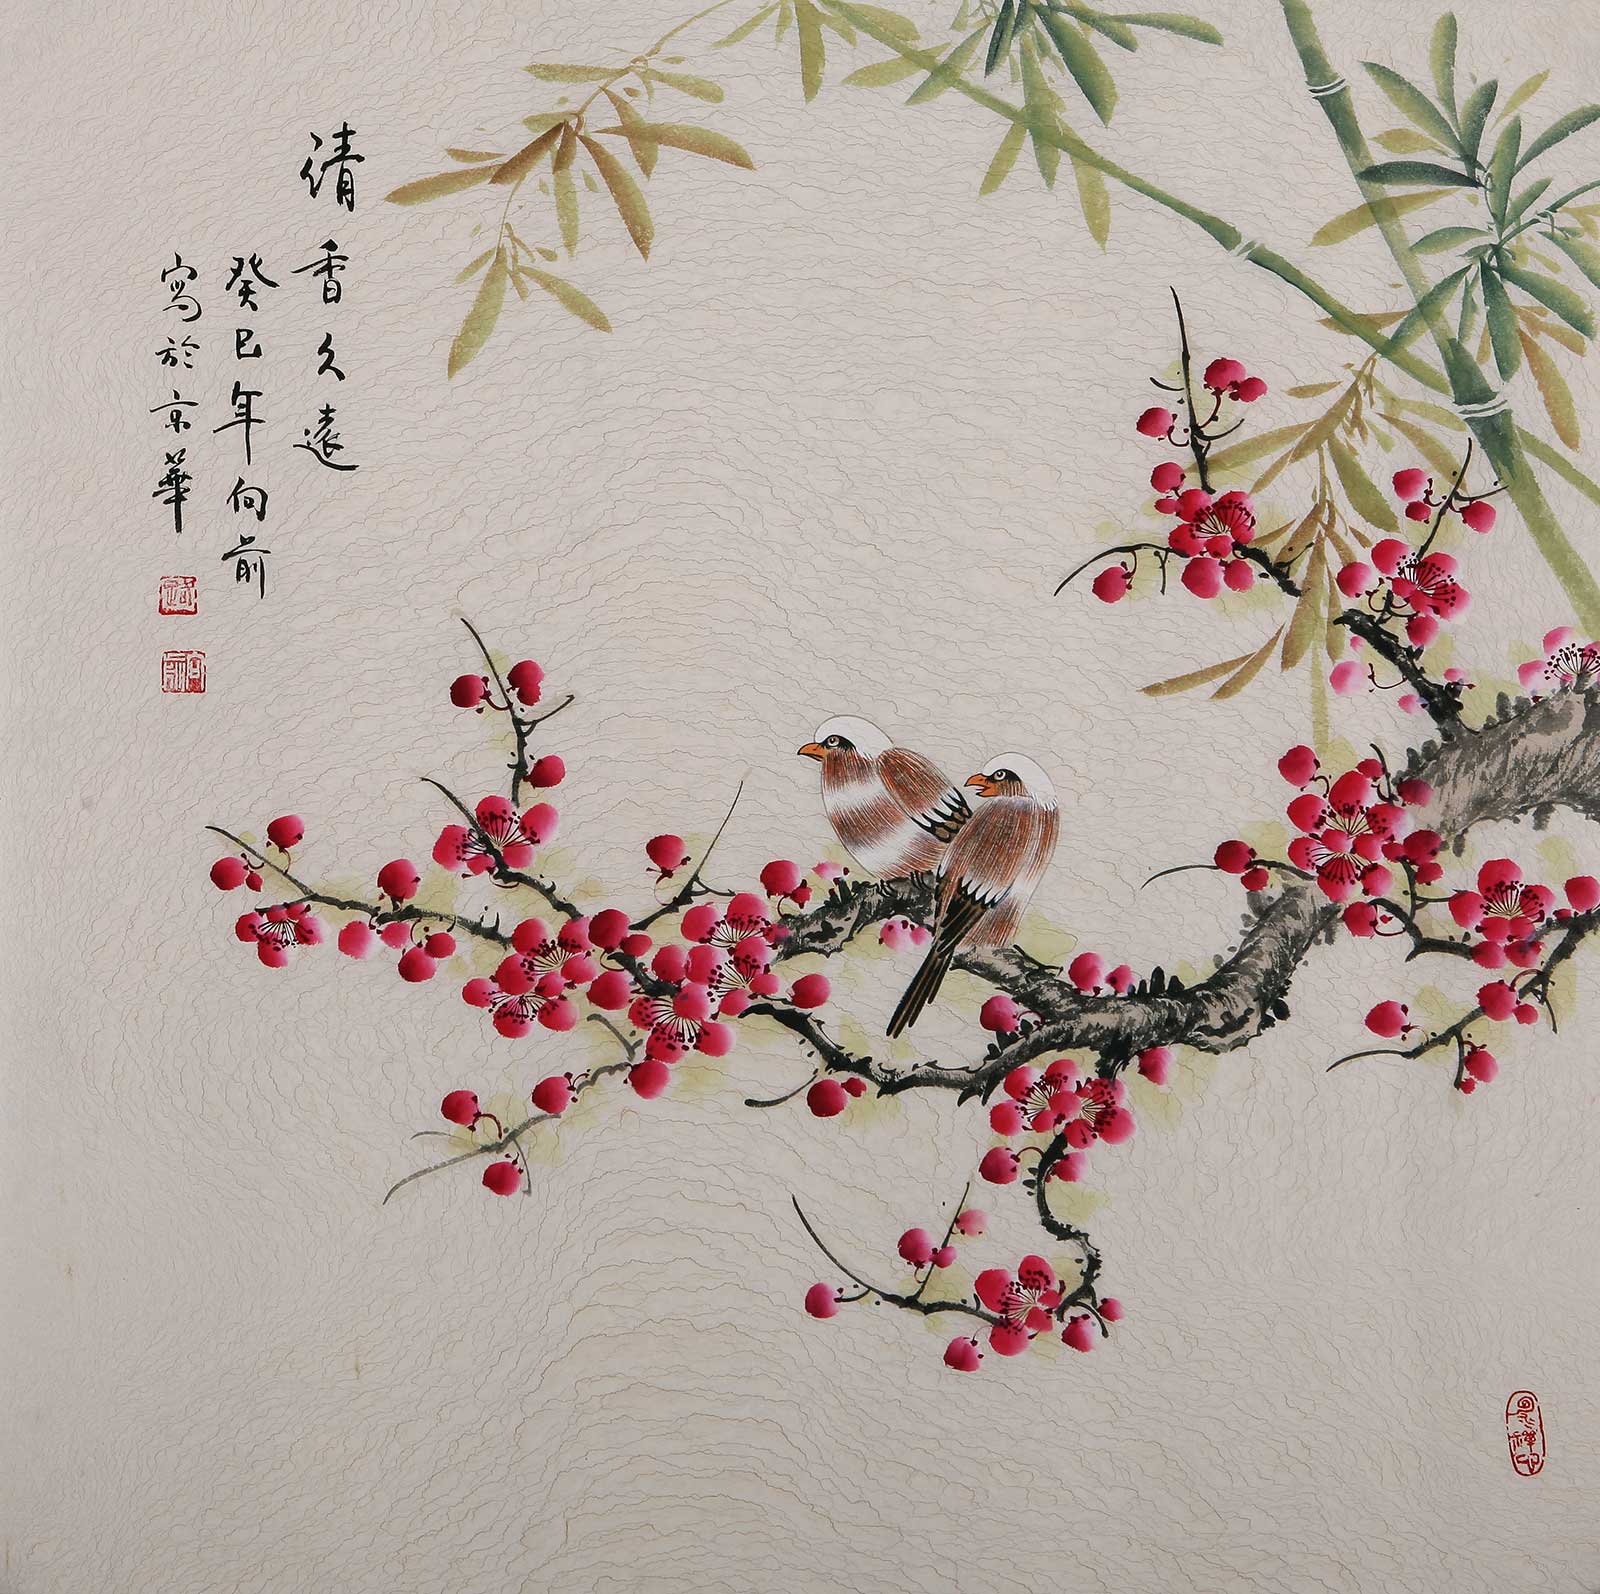 清香久遠
癸巳年向前
寫於京華